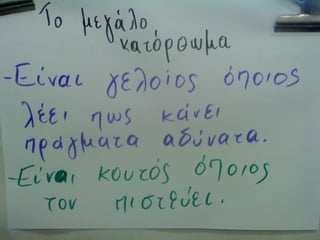 Το μεγάλο
κατόρθωμα
-Είναι γελοίος όποιος
λέει πως κάνει
πράγματα αδύνατα.
-Είναι κουτός όποιος
τον πιστεύει.